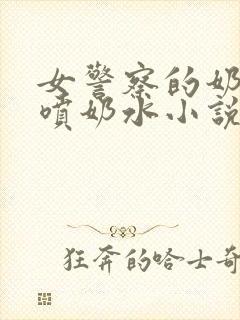 女警察的奶
噴奶水小說
狂奔的哈士奇